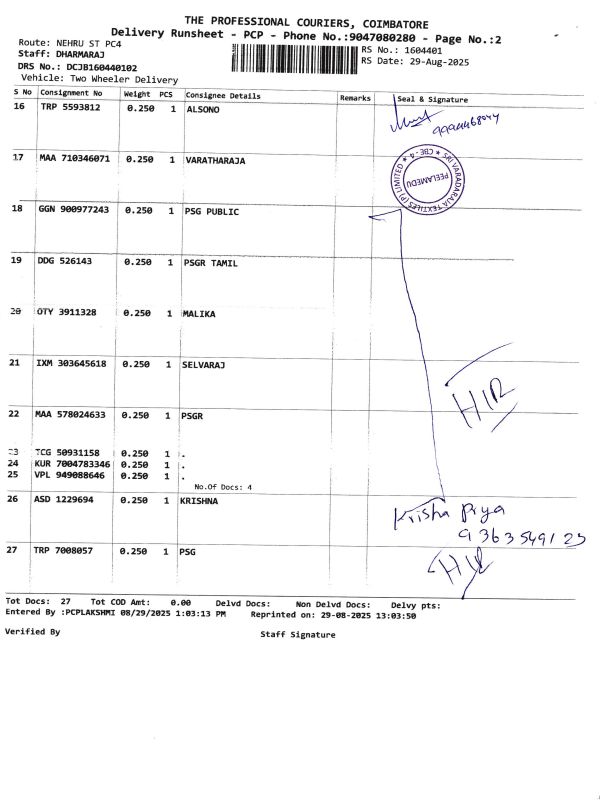 THE PROFESSIONAL COURIERS, COIMBATORE
Delivery Runsheet - PCP - Phone No.:9047080280 - Page No.:2
Route: NEHRU ST PC4
Staff: DHARMARAJ
DRS No.: DCJB160440102
Vehicle: Two Wheeler Delivery
RS No.: 1604401
RS Date: 29-Aug-2025
S No Consignment No Weight PCS Consignee Details Remarks Seal & Signature
16 TRP 5593812 0.250 1 ALSONO
17 MAA 710346071 0.250 1 VARATHARAJA
SRI VARADARAJA TEXTILES (P) LIMITED * CBE-4 *
PEELAMEDU
18 GGN 900977243 0.250 1 PSG PUBLIC
19 DDG 526143 0.250 1 PSGR TAMIL
20 OTY 3911328 0.250 1 MALIKA
21 IXM 303645618 0.250 1 SELVARAJ
22 MAA 578024633 0.250 1 PSGR
23 TCG 50931158 0.250 1 .
24 KUR 7004783346 0.250 1 .
25 VPL 949088646 0.250 1 .
No.Of Docs: 4
26 ASD 1229694 0.250 1 KRISHNA
Krisha Prya
9363549123
27 TRP 7008057 0.250 1 PSG
Tot Docs: 27 Tot COD Amt: 0.00 Delvd Docs: Non Delvd Docs: Delvy pts:
Entered By :PCPLAKSHMI 08/29/2025 1:03:13 PM Reprinted on: 29-08-2025 13:03:50
Verified By Staff Signature